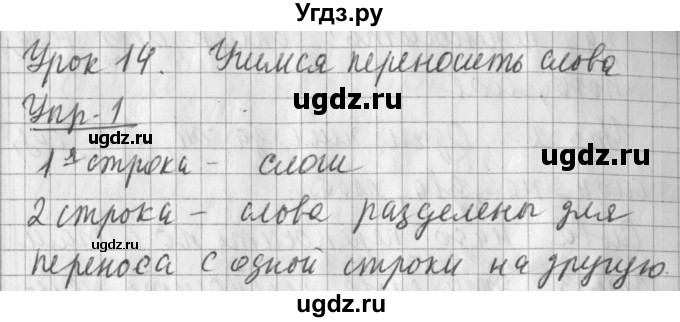 Угдз.ру
Урок 14. Учимся переносить слова
ugdz.ru
Упр. 1
ugdz.ru
1я строка - слоги
ugdz.ru
2 строка - слова разделены для
ugdz.ru
переноса с одной строки на другую.
ugdz.ru
ugdz.ru